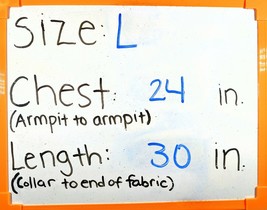 Size: L
Chest: 24 in.
(Armpit to armpit)
Length: 30 in.
(Collar to end of fabric)